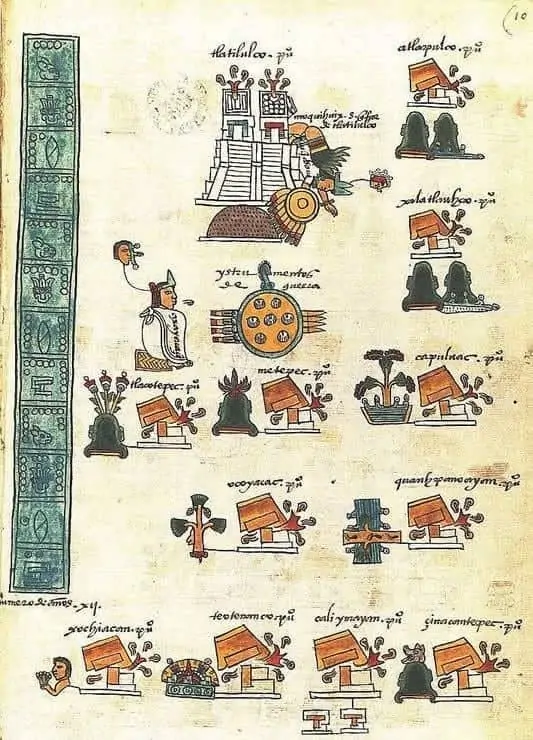 10
tlatilulco. pu
atlapulco. pu
moquihuix. señor
de tlatilulco
xalatlauhco. pu
ystrumentos
de guerra
tlacotepec. pu
metepec. pu
capuluac. pu
ocoyacac. pu
quauhpanoayan. pu
numero de años. xii.
xochiacan. pu
teotenanco. pu
caliymayan. pu
çinacantepec. pu